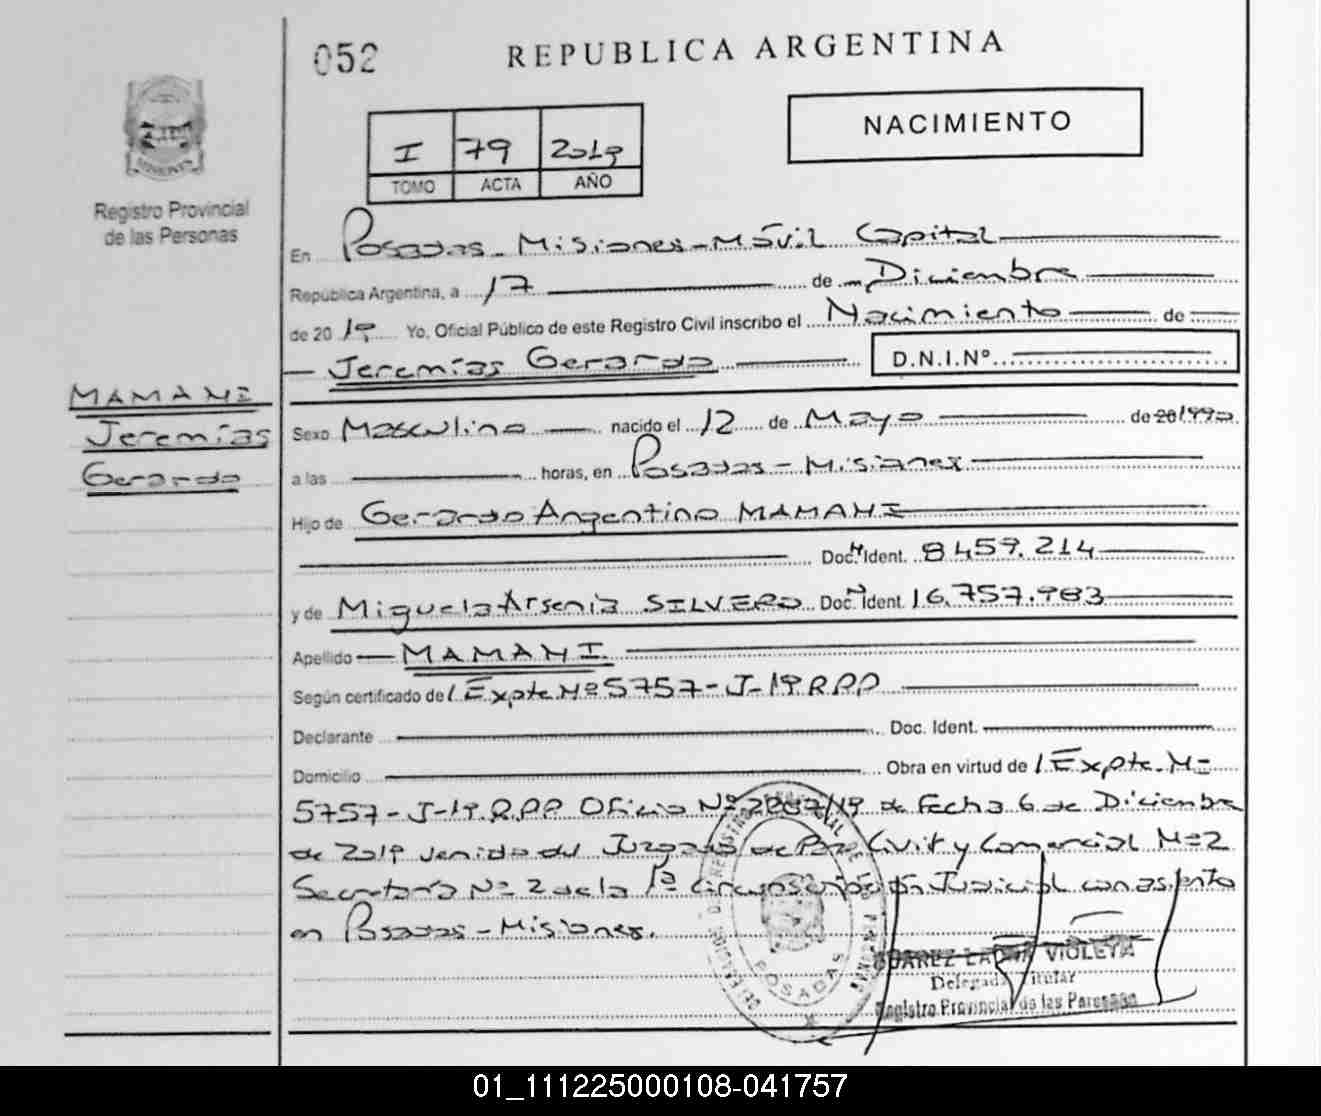 052
REPUBLICA ARGENTINA
NACIMIENTO
I 79 2019
TOMO ACTA AÑO
MISIONES
Registro Provincial
de las Personas
En Posadas - Misiones - Móvil Capital
República Argentina, a 17 de Diciembre
de 2019 Yo, Oficial Público de este Registro Civil inscribo el Nacimiento de
Jeremías Gerardo D.N.I.Nº
MAMANI
Jeremías
Gerardo
Sexo Masculino nacido el 12 de Mayo de 20 1990
a las horas, en Posadas - Misiones
Hijo de Gerardo Argentino MAMANI
Doc. N Ident. 8.459.214
y de Miguela Arsenia SILVERO Doc. N Ident. 16.757.983
Apellido MAMANI
Según certificado de Expte Nº 5757-J-19 RPP
Declarante Doc. Ident.
Domicilio Obra en virtud de Expte. Nº
5757-J-19.RPP Oficio Nº /19 de Fecha 6 de Diciembre
de 2019 venido del Juzgado de Paz Civil y Comercial Nº 2
Secretaría Nº 2 de la 1ª Circunscripción Judicial con asiento
en Posadas - Misiones.
POSADAS
SUAREZ VIOLETA
Delegada Titular
Registro Provincial de las Personas
01_111225000108-041757